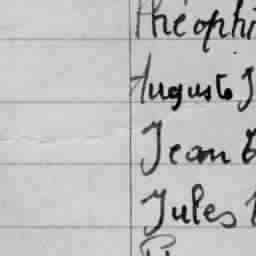 Théophi
Auguste J
Jean
Jules